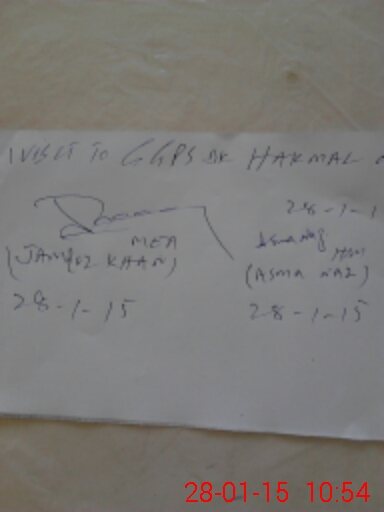 VISIT TO GGPS DK HAKMAL
28-1-1
MEA
(JAMROZ KHAN)
28-1-15
Asma Naz
HM
(ASMA NAZ)
28-1-15
28-01-15 10:54